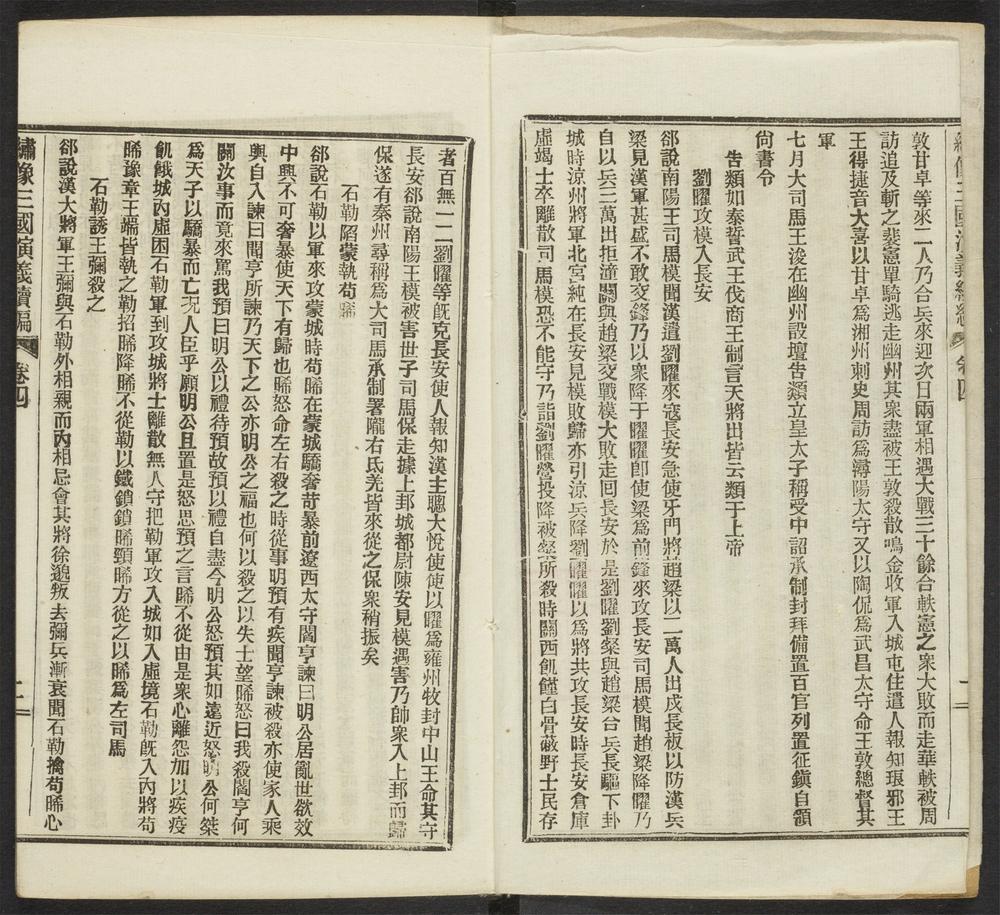 繡像三國演義續編 卷四
二
敦甘卓等來二人乃合兵來迎次日兩軍相遇大戰三十餘合軼憲之衆大敗而走華軼被周
訪追及斬之裴憲單騎逃走幽州其衆盡被王敦殺散鳴金收軍入城屯住遣人報知琅邪王
王得捷音大喜以甘卓爲湘州刺史周訪爲潯陽太守又以陶侃爲武昌太守命王敦總督其
軍
七月大司馬王浚在幽州設壇告類立皇太子稱受中詔承制封拜備置百官列置征鎭自領
尙書令
告類如泰誓武王伐商王制言天將出皆云類于上帝
劉曜攻模入長安
郤說南陽王司馬模聞漢遣劉曜來寇長安急使牙門將趙梁以二萬人出戍長板以防漢兵
梁見漢軍甚盛不敢交鋒乃以衆降于曜曜卽使梁爲前鋒來攻長安司馬模聞趙梁降曜乃
自以兵三萬出拒潼關與趙梁交戰模大敗走回長安於是劉曜劉粲與趙梁合兵長驅下卦
城時涼州將軍北宮純在長安見模敗歸亦引涼兵降劉曜曜以爲將共攻長安時長安倉庫
虛竭士卒離散司馬模恐不能守乃詣劉曜營投降被粲所殺時關西飢饉白骨蔽野士民存
者百無一二劉曜等旣克長安使人報知漢主聰大悅使使以曜爲雍州牧封中山王命其守
長安郤說南陽王模被害世子司馬保走據上邽城都尉陳安見模遇害乃帥衆入上邽而歸
保遂有秦州尋稱爲大司馬承制署隴右氐羌皆來從之保衆稍振矣
石勒陷蒙執苟晞
郤說石勒以軍來攻蒙城時苟晞在蒙城驕奢苛暴前遼西太守閻亨諫曰明公居亂世欲效
中興不可奢暴使天下有歸也晞怒命左右殺之時從事明預有疾聞亨諫被殺亦使家人乘
輿自入諫曰聞亨所諫乃天下之公亦明公之福也何以殺之以失士望晞怒曰我殺閻亨何
關汝事而竟來罵我預曰明公以禮待預故預以禮自盡今明公怒預其如遠近怒明公何桀
爲天子以驕暴而亡況人臣乎願明公且置是怒思預之言晞不從由是衆心離怨加以疾疫
飢餓城內虛困石勒軍到攻城將士離散無人守把勒軍攻入城如入虛境石勒旣入內將苟
晞豫章王端皆執之勒招晞降晞不從勒以鐵鎖鎖晞頸晞方從之以晞爲左司馬
石勒誘王彌殺之
郤說漢大將軍王彌與石勒外相親而內相忌會其將徐邈叛去彌兵漸衰聞石勒擒苟晞心
繡像三國演義續編 卷四
二